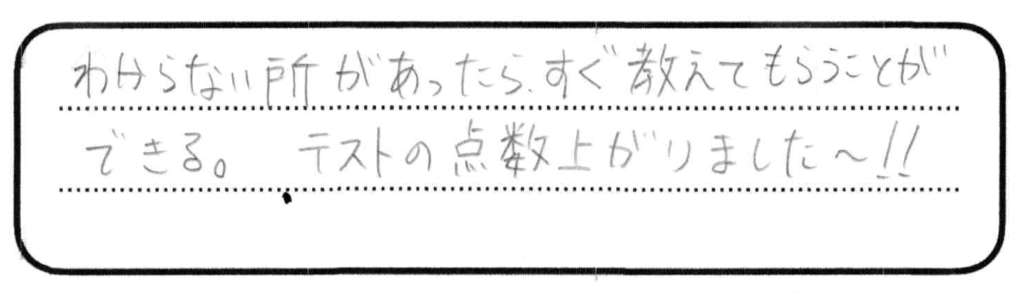 わからない所があったら、すぐ教えてもらうことが
できる。 テストの点数上がりました～!!